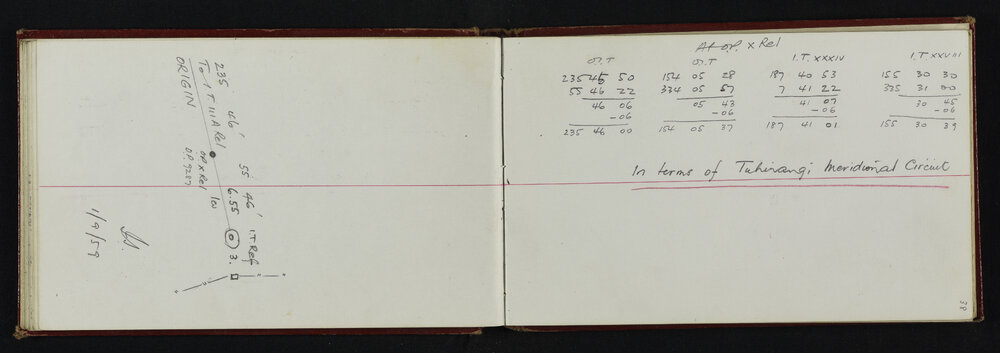 235 46'
To IT IIIA Rel
ORIGIN
OP X Rel
O.P. 9287
Ico
6.55
55 46'
I.T Ref
3.
1/9/59
At O.P. X Rel
O.T O.T I.T. XXXIV I.T. XXVIII
235 45 50 154 05 28 187 40 53 155 30 30
55 46 22 334 05 57 7 41 22 335 31 00
46 06 05 43 41 07 30 45
-06 -06 -06 -06
235 46 00 154 05 37 187 41 01 155 30 39
In terms of Tuhirangi Meridional Circuit
38